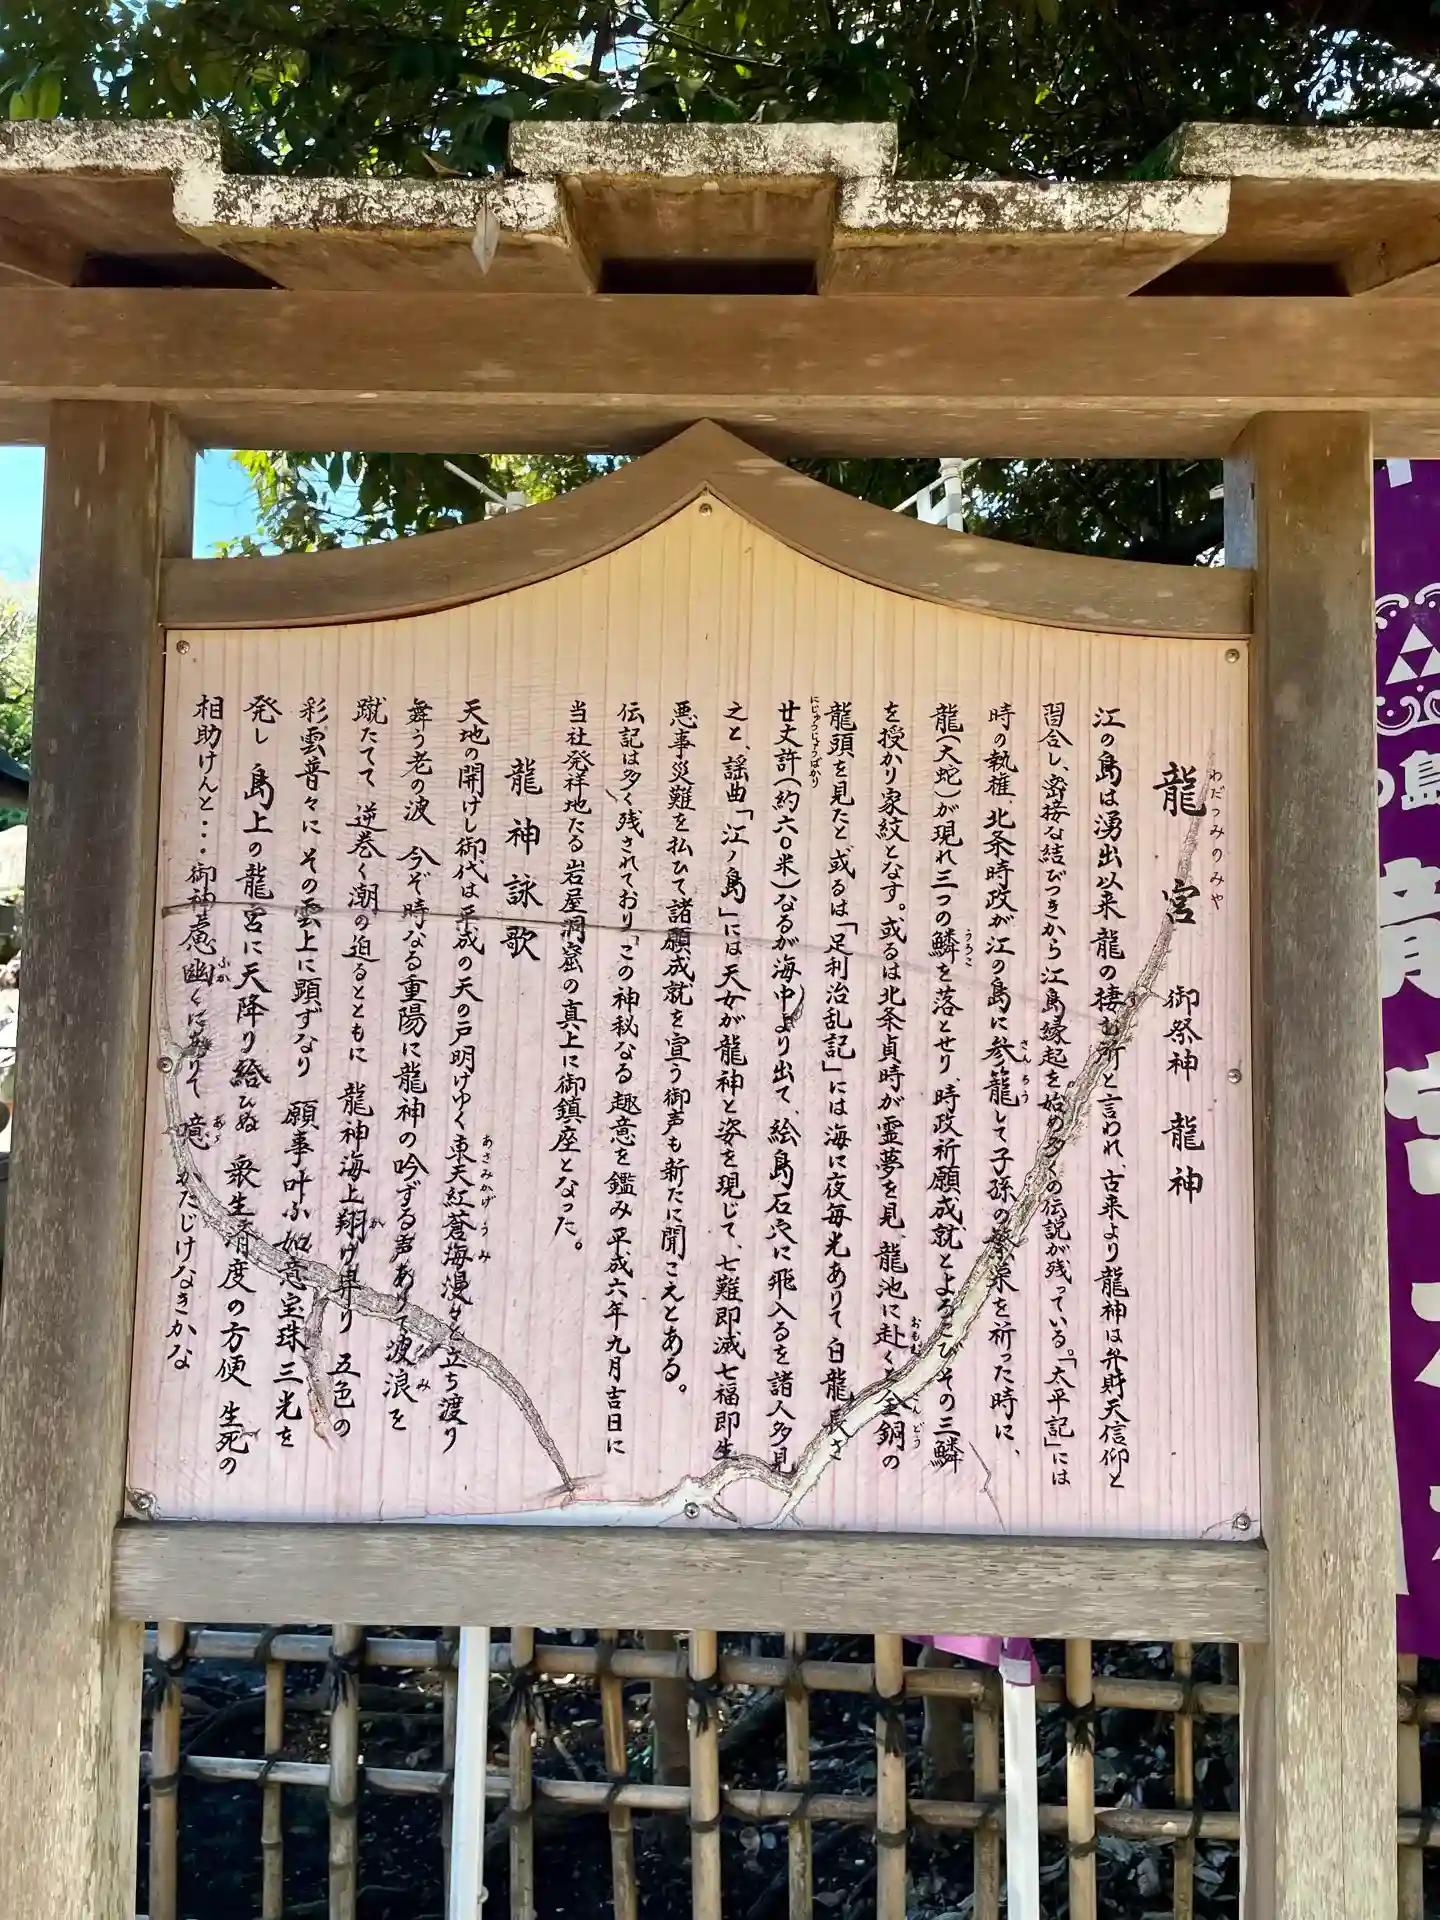 龍宮 御祭神 龍神
わだつみのみや
江の島は湧出以来、龍の棲む所と言われ、古来より龍神は弁財天信仰と
習合し、密接な結びつきから江島縁起を始め多くの伝説が残っている。「太平記」には
時の執権、北条時政が江の島に参籠して子孫の繁栄を祈った時に、
さんろう
龍(大蛇)が現れ三つの鱗を落とせり、時政祈願成就とよろこびその三鱗
うろこ
を授かり家紋となす。或るは北条貞時が霊夢を見、龍池に赴くと金銅の
おもむ
こんどう
龍頭を見たと、或るは「足利治乱記」には海に夜毎光ありて白龍長さ
廿丈許(約六〇米)なるが海中より出て、絵島石穴に飛入るを諸人多見
にじゅうじょうばかり
之と、謡曲「江ノ島」には天女が龍神と姿を現じて、七難即滅七福即生
悪事災難を払ひて諸願成就を宣う御声も新たに聞こえとある。
伝記は多く残されており「この神秘なる趣意を鑑み平成六年九月吉日に
当社発祥地たる岩屋洞窟の真上に御鎮座となった。
龍神詠歌
天地の開けし御代は平成の天の戸明けゆく東天紅蒼海漫々と立ち渡り
あさみかげ うみ
舞う老の波 今ぞ時なる重陽に龍神の吟ずる声ありて波浪を
蹴たてて 逆巻く潮の迫るとともに 龍神海上翔け昇り 五色の
か
彩雲普々に その雲上に顕ずなり 願事叶ふ如意宝珠三光を
発し 島上の龍宮に天降り給ひぬ 衆生済度の方便 生死の
相助けんと・・・御神慮幽くにありて 噫 かたじけなきかな
ふか
あゝ
の島